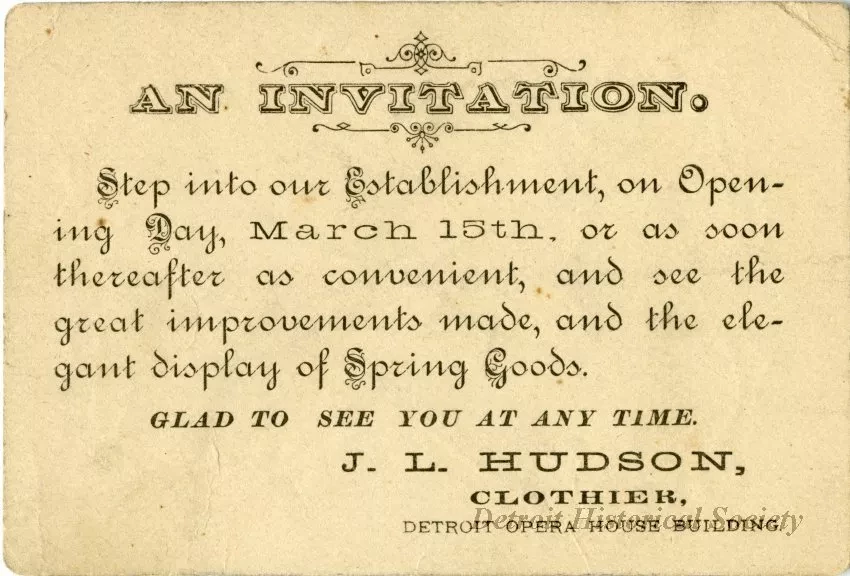 AN INVITATION.
Step into our Establishment, on Open-
ing Day, March 15th, or as soon
thereafter as convenient, and see the
great improvements made, and the ele-
gant display of Spring Goods.
GLAD TO SEE YOU AT ANY TIME.
J. L. HUDSON,
CLOTHIER,
DETROIT OPERA HOUSE BUILDING.
Detroit Historical Society